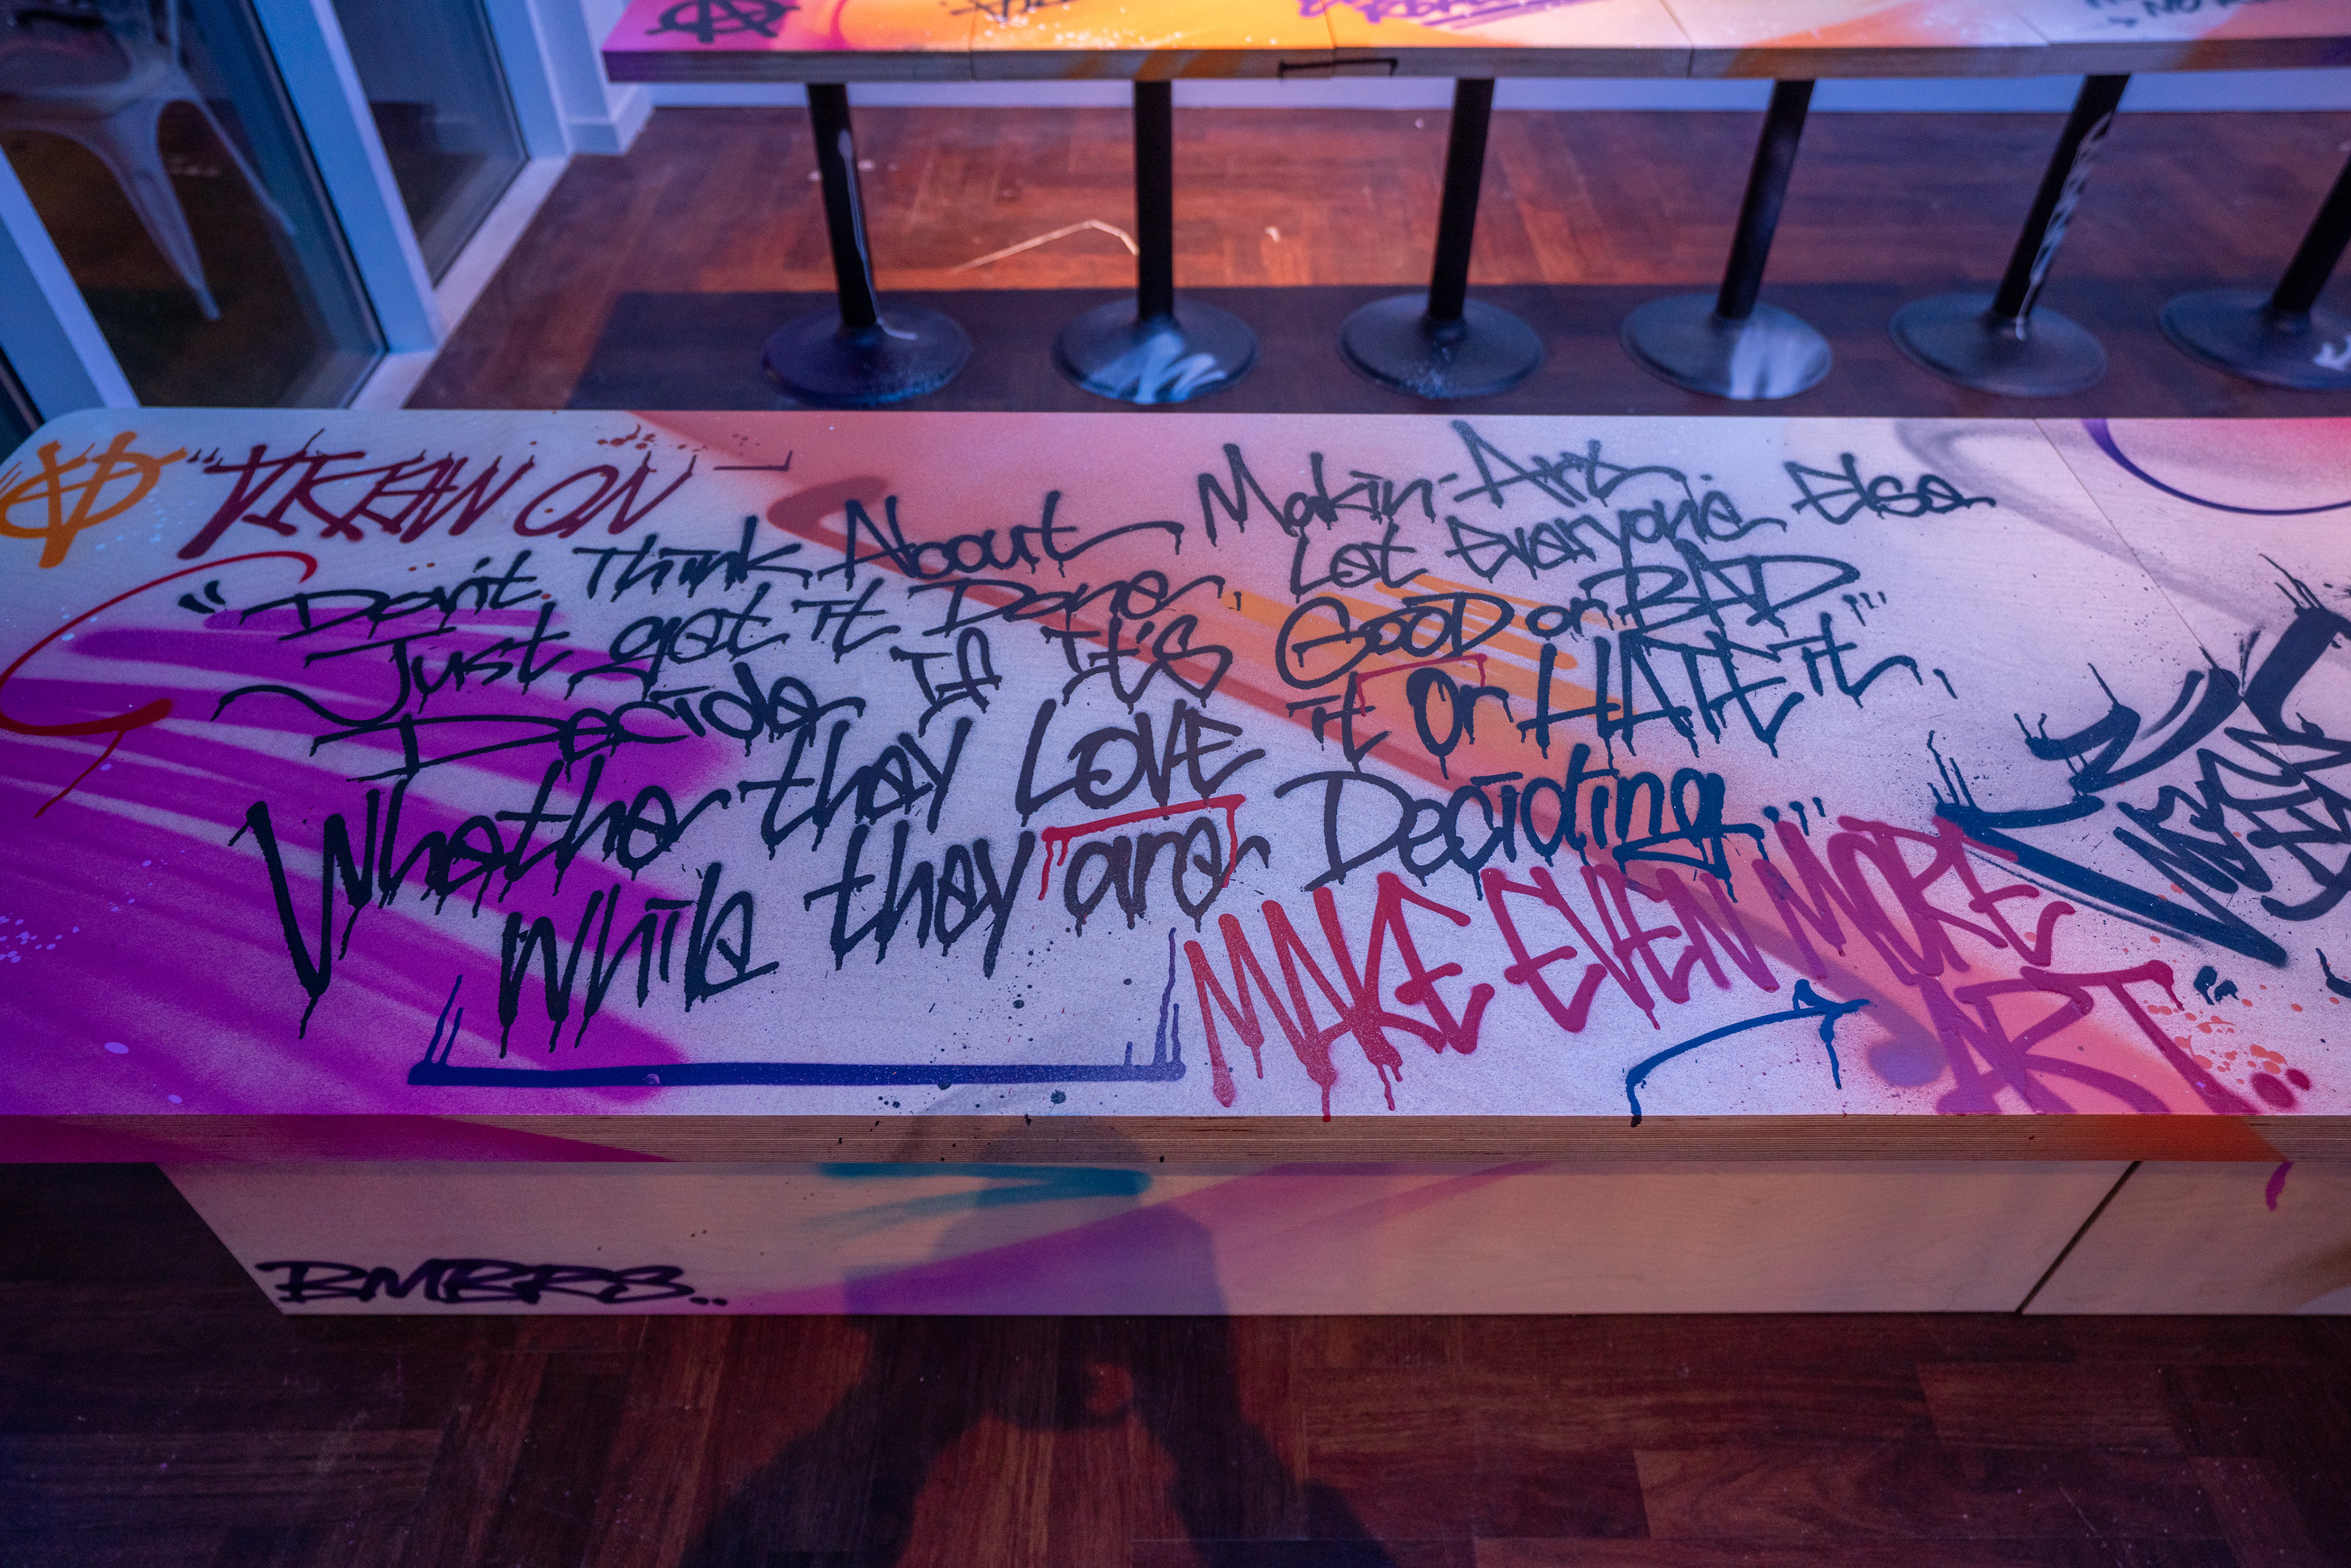 "Don't Think About Makin' Art
Just get it Done, Let Everyone Else
Decide If It's GOOD or BAD
Whether they LOVE it or HATE it,
While they are Deciding...
MAKE EVEN MORE
ART."
BMBRS..